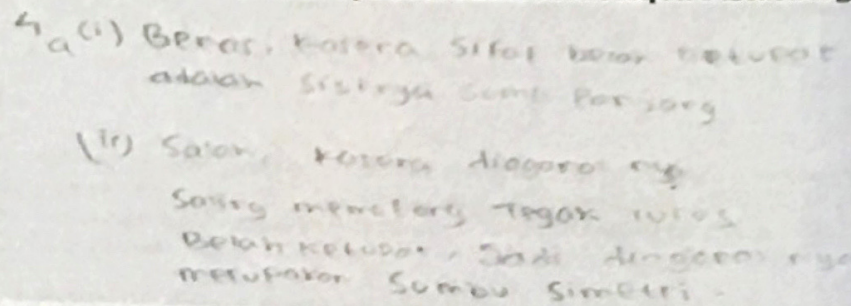 4a (i) Benar, karena sifat belah ketupat
adalah sisinya sama panjang
(ii) Salah, karena diagonal nya
saling memotong Tegak lurus
Belah ketupat, Jadi diagonal nya
merupakan Sumbu Simetri.